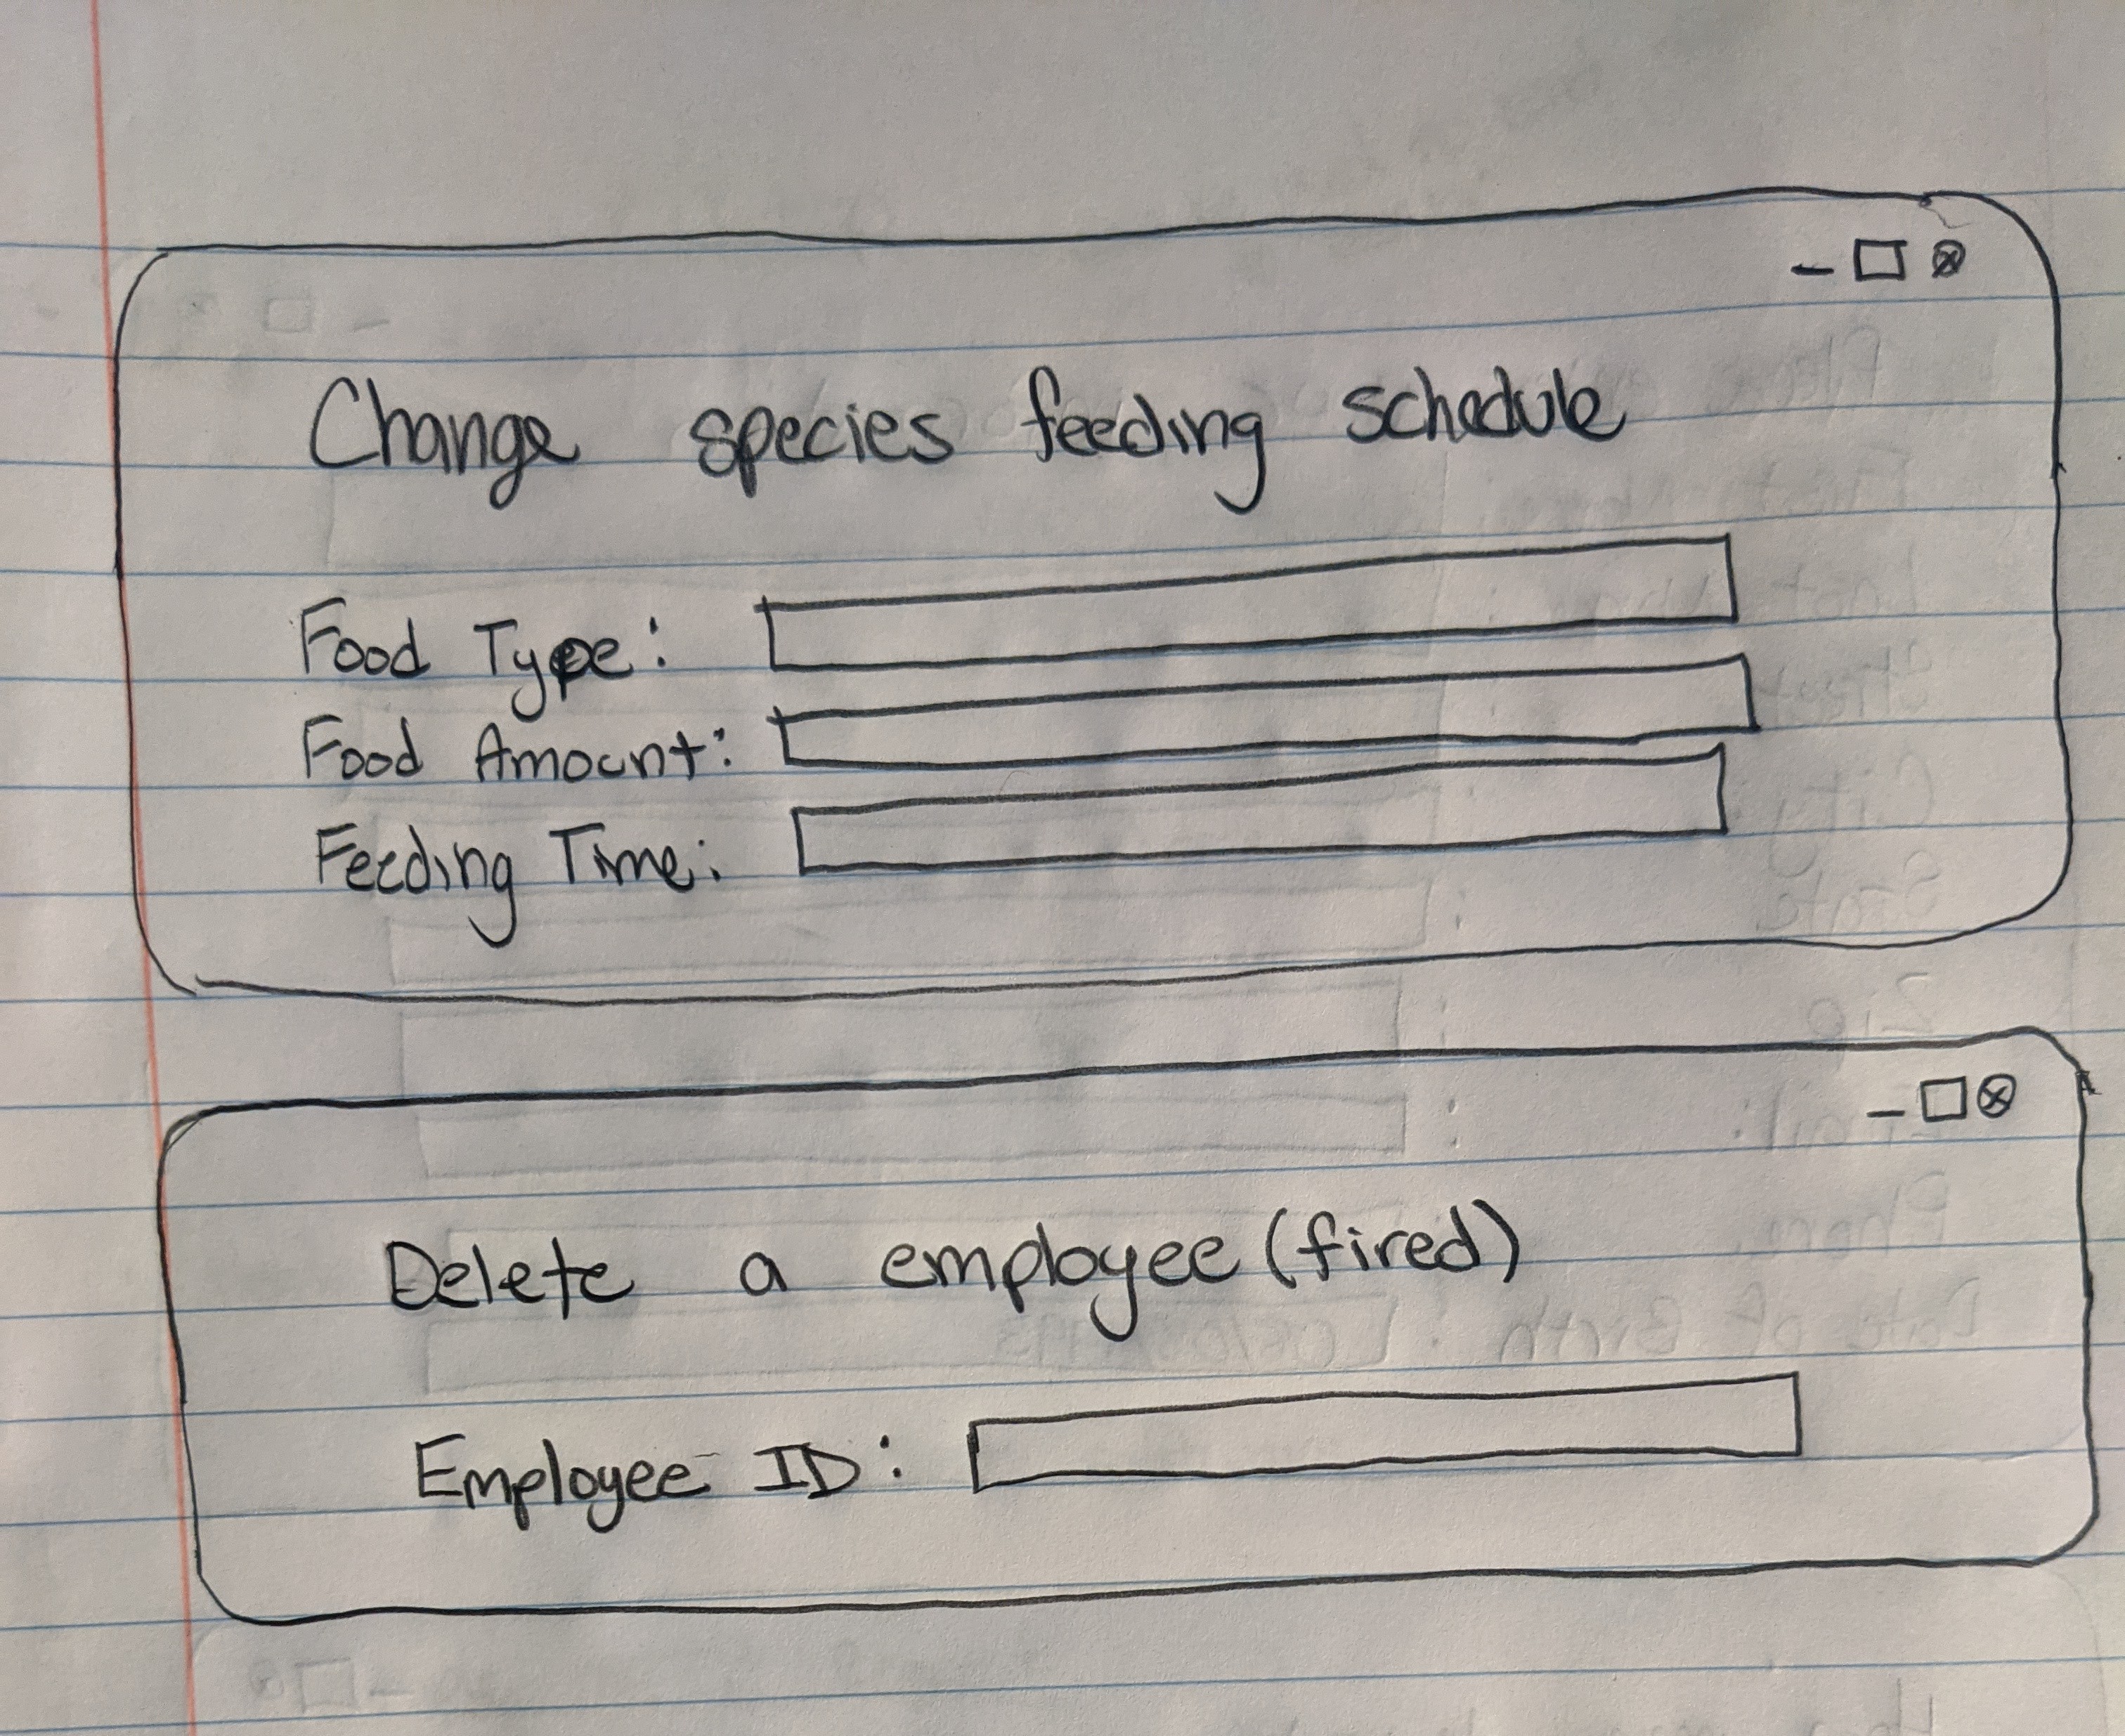 Change species feeding schedule
Food Type:
Food Amount:
Feeding Time:
Delete a employee (fired)
Employee ID: